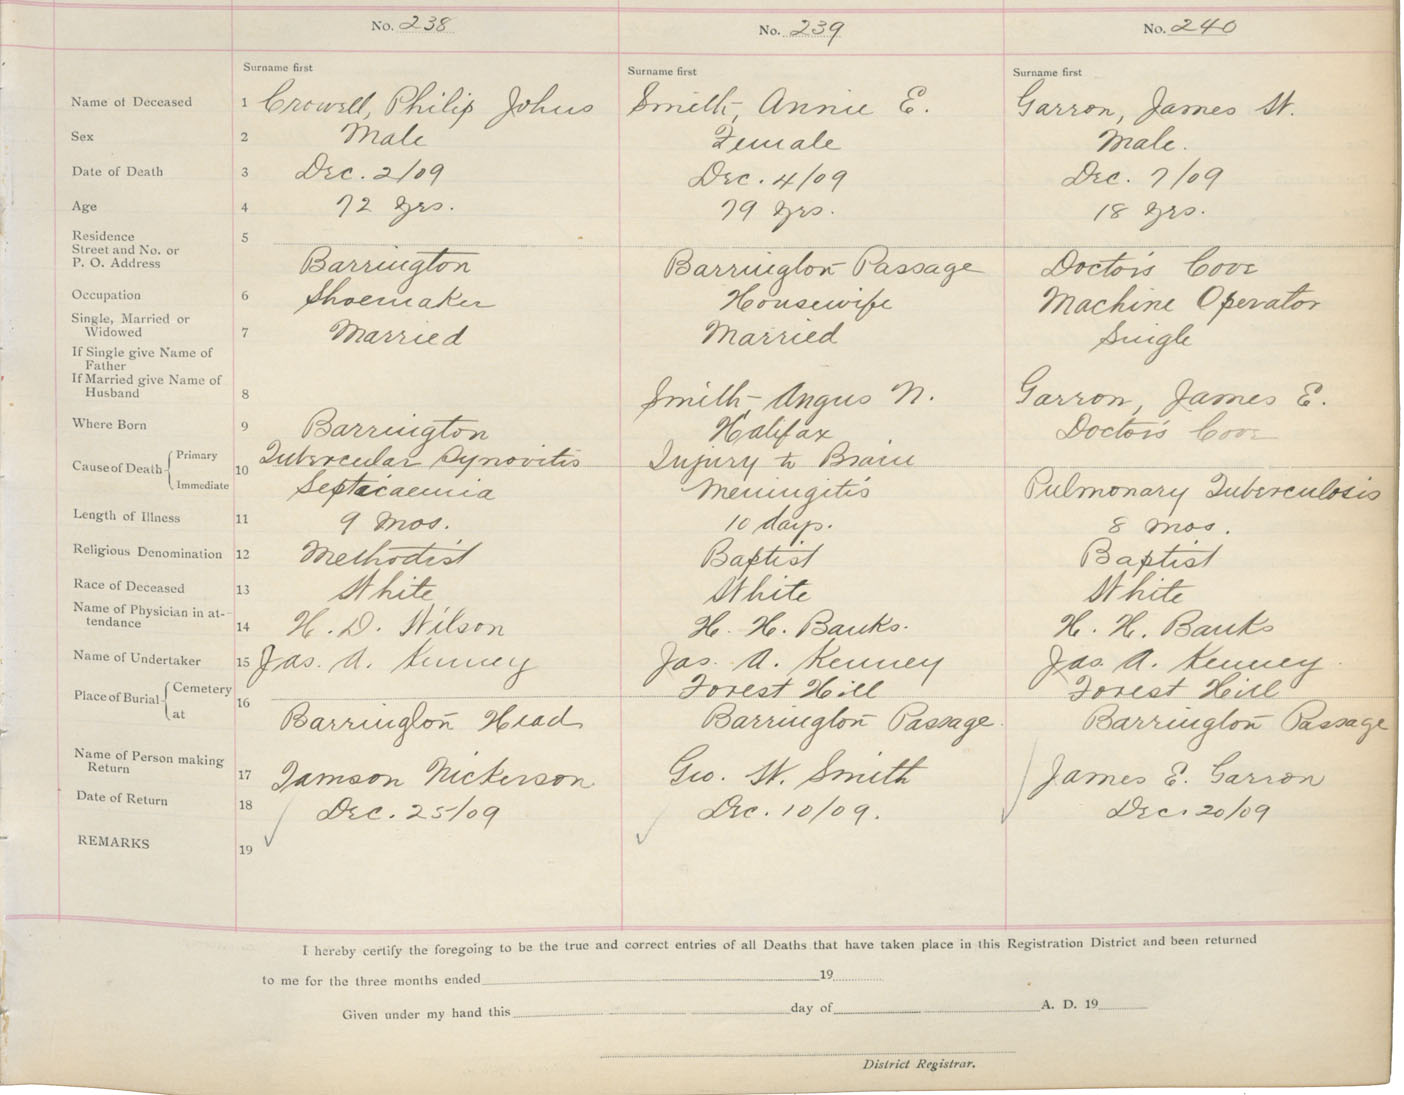 No. 238 No. 239 No. 240
Surname first Surname first Surname first
Name of Deceased 1 Crowell, Philip Johns Smith, Annie E. Garron, James W.
Sex 2 Male Female Male.
Date of Death 3 Dec. 2/09 Dec. 4/09 Dec. 7/09
Age 4 72 yrs. 79 yrs. 18 yrs.
Residence 5
Street and No. or
P. O. Address Barrington Barrington Passage Doctor's Cove
Occupation 6 Shoemaker Housewife Machine Operator
Single, Married or
Widowed 7 Married Married Single
If Single give Name of
Father
If Married give Name of
Husband 8 Smith, Angus N. Garron, James E.
Where Born 9 Barrington Halifax Doctor's Cove
Cause of Death Primary 10 Tubercular Synovitis Injury to Brain
Immediate Septicaemia Meningitis Pulmonary Tuberculosis
Length of Illness 11 9 mos. 10 days. 8 mos.
Religious Denomination 12 Methodist Baptist Baptist
Race of Deceased 13 White White White
Name of Physician in at-
tendance 14 H. D. Wilson H. H. Banks. H. H. Banks
Name of Undertaker 15 Jas. A. Kenney Jas. A. Kenney Jas. A. Kenney
Place of Burial Cemetery 16 Forest Hill Forest Hill
at Barrington Head Barrington Passage. Barrington Passage
Name of Person making
Return 17 Tamson Nickerson Geo. W. Smith James E. Garron
Date of Return 18 Dec. 25/09 Dec. 10/09. Dec. 20/09
REMARKS 19
I hereby certify the foregoing to be the true and correct entries of all Deaths that have taken place in this Registration District and been returned
to me for the three months ended 19
Given under my hand this day of A. D. 19
District Registrar.